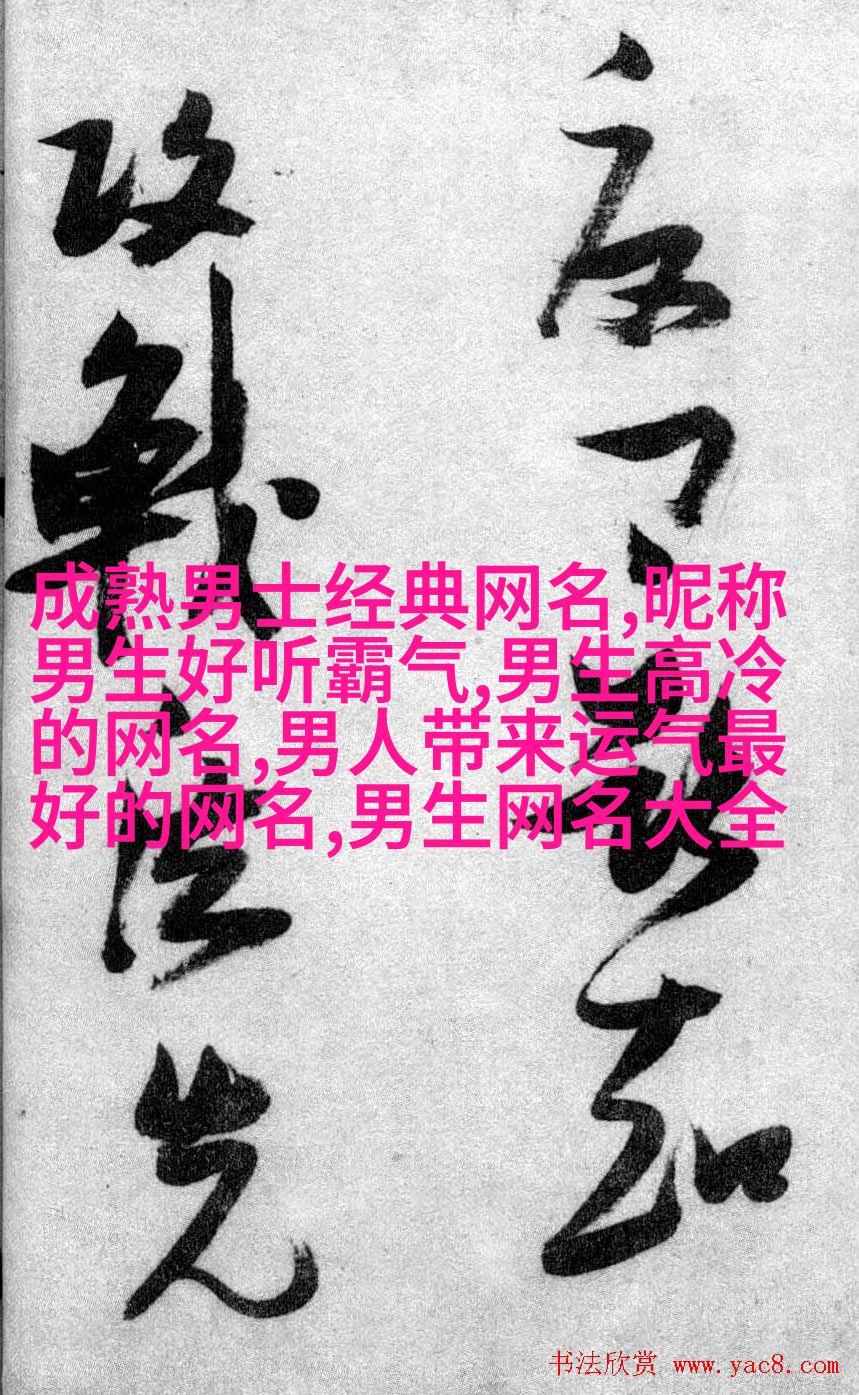 知
攻戰先
成熟男士经典网名,昵称
男生好听霸气,男生高冷
的网名,男人带来运气最
好的网名,男生网名大全
书法欣赏 www.yac8.com